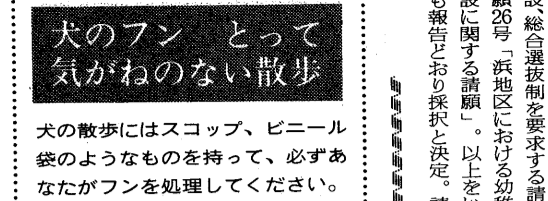 犬のフン　とって
気がねのない散歩
犬の散歩にはスコップ、ビニール
袋のようなものを持って、必ずあ
なたがフンを処理してください。
設、総合選抜制を要求する請
願26号「浜地区における幼稚
設に関する請願」。以上を
も報告どおり採択と決定。